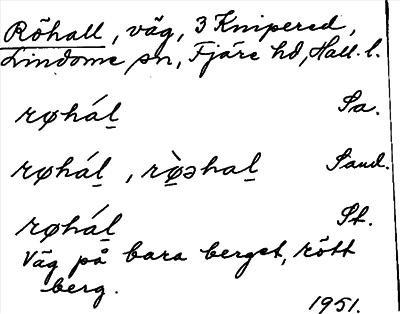 Röhall, väg, 3 Knipered,
Lindome sn, Fjäre hd, Hall. l.
røhál̲ Sa.
røhál̲, rø̲̀əhal̲ Sand.
røhál̲ St.
Väg på bara berget, rött
berg.
1951.